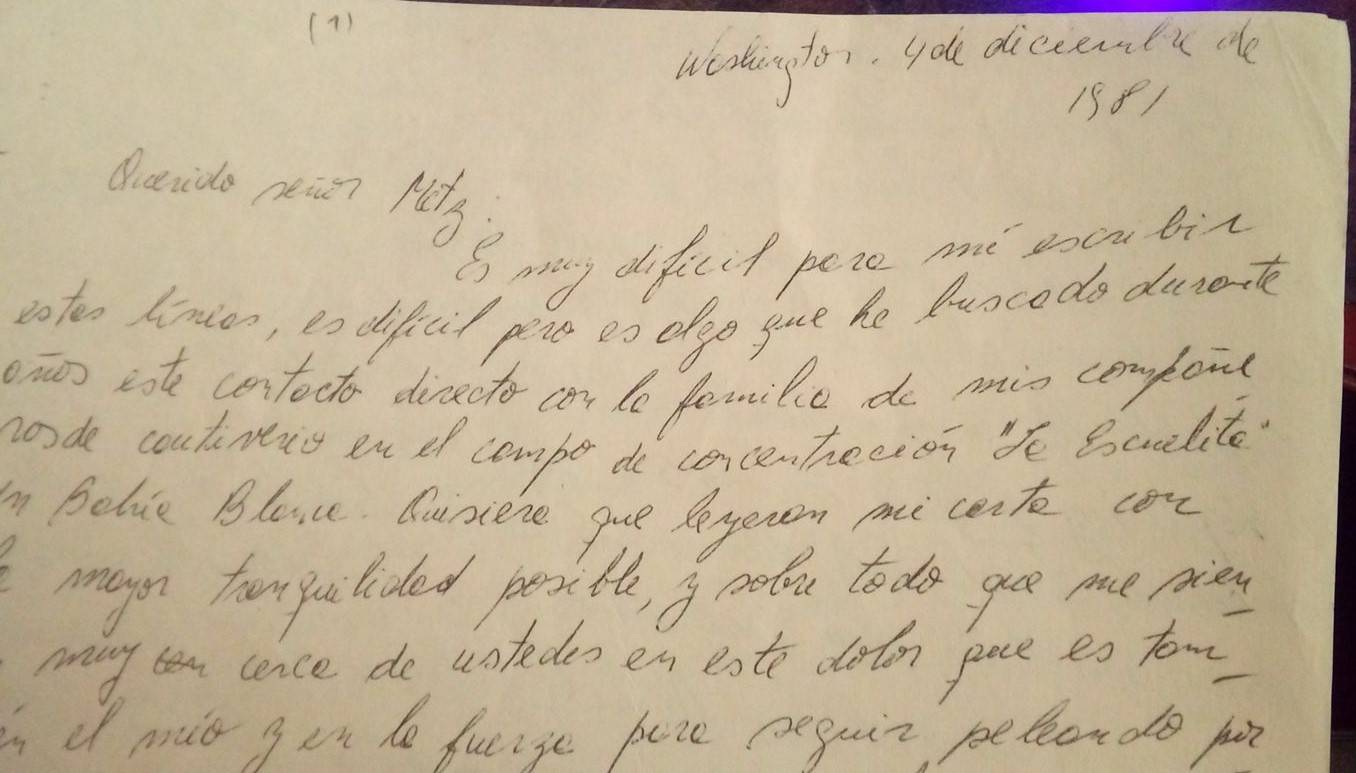 (1)
Washington. 4 de diciembre de
1981
Querido señor Metz:
Es muy difícil para mí escribir
estas líneas, es difícil pero es algo que he buscado durante
años este contacto directo con la familia de mis compañe
ros de cautiverio en el campo de concentración "La Escuelita"
en Bahía Blanca. Quisiera que leyeran mi carta con
la mayor tranquilidad posible, y sobre todo que me sien
muy cerca de ustedes en este dolor que es tam_
én el mío y en la fuerza para seguir peleando por